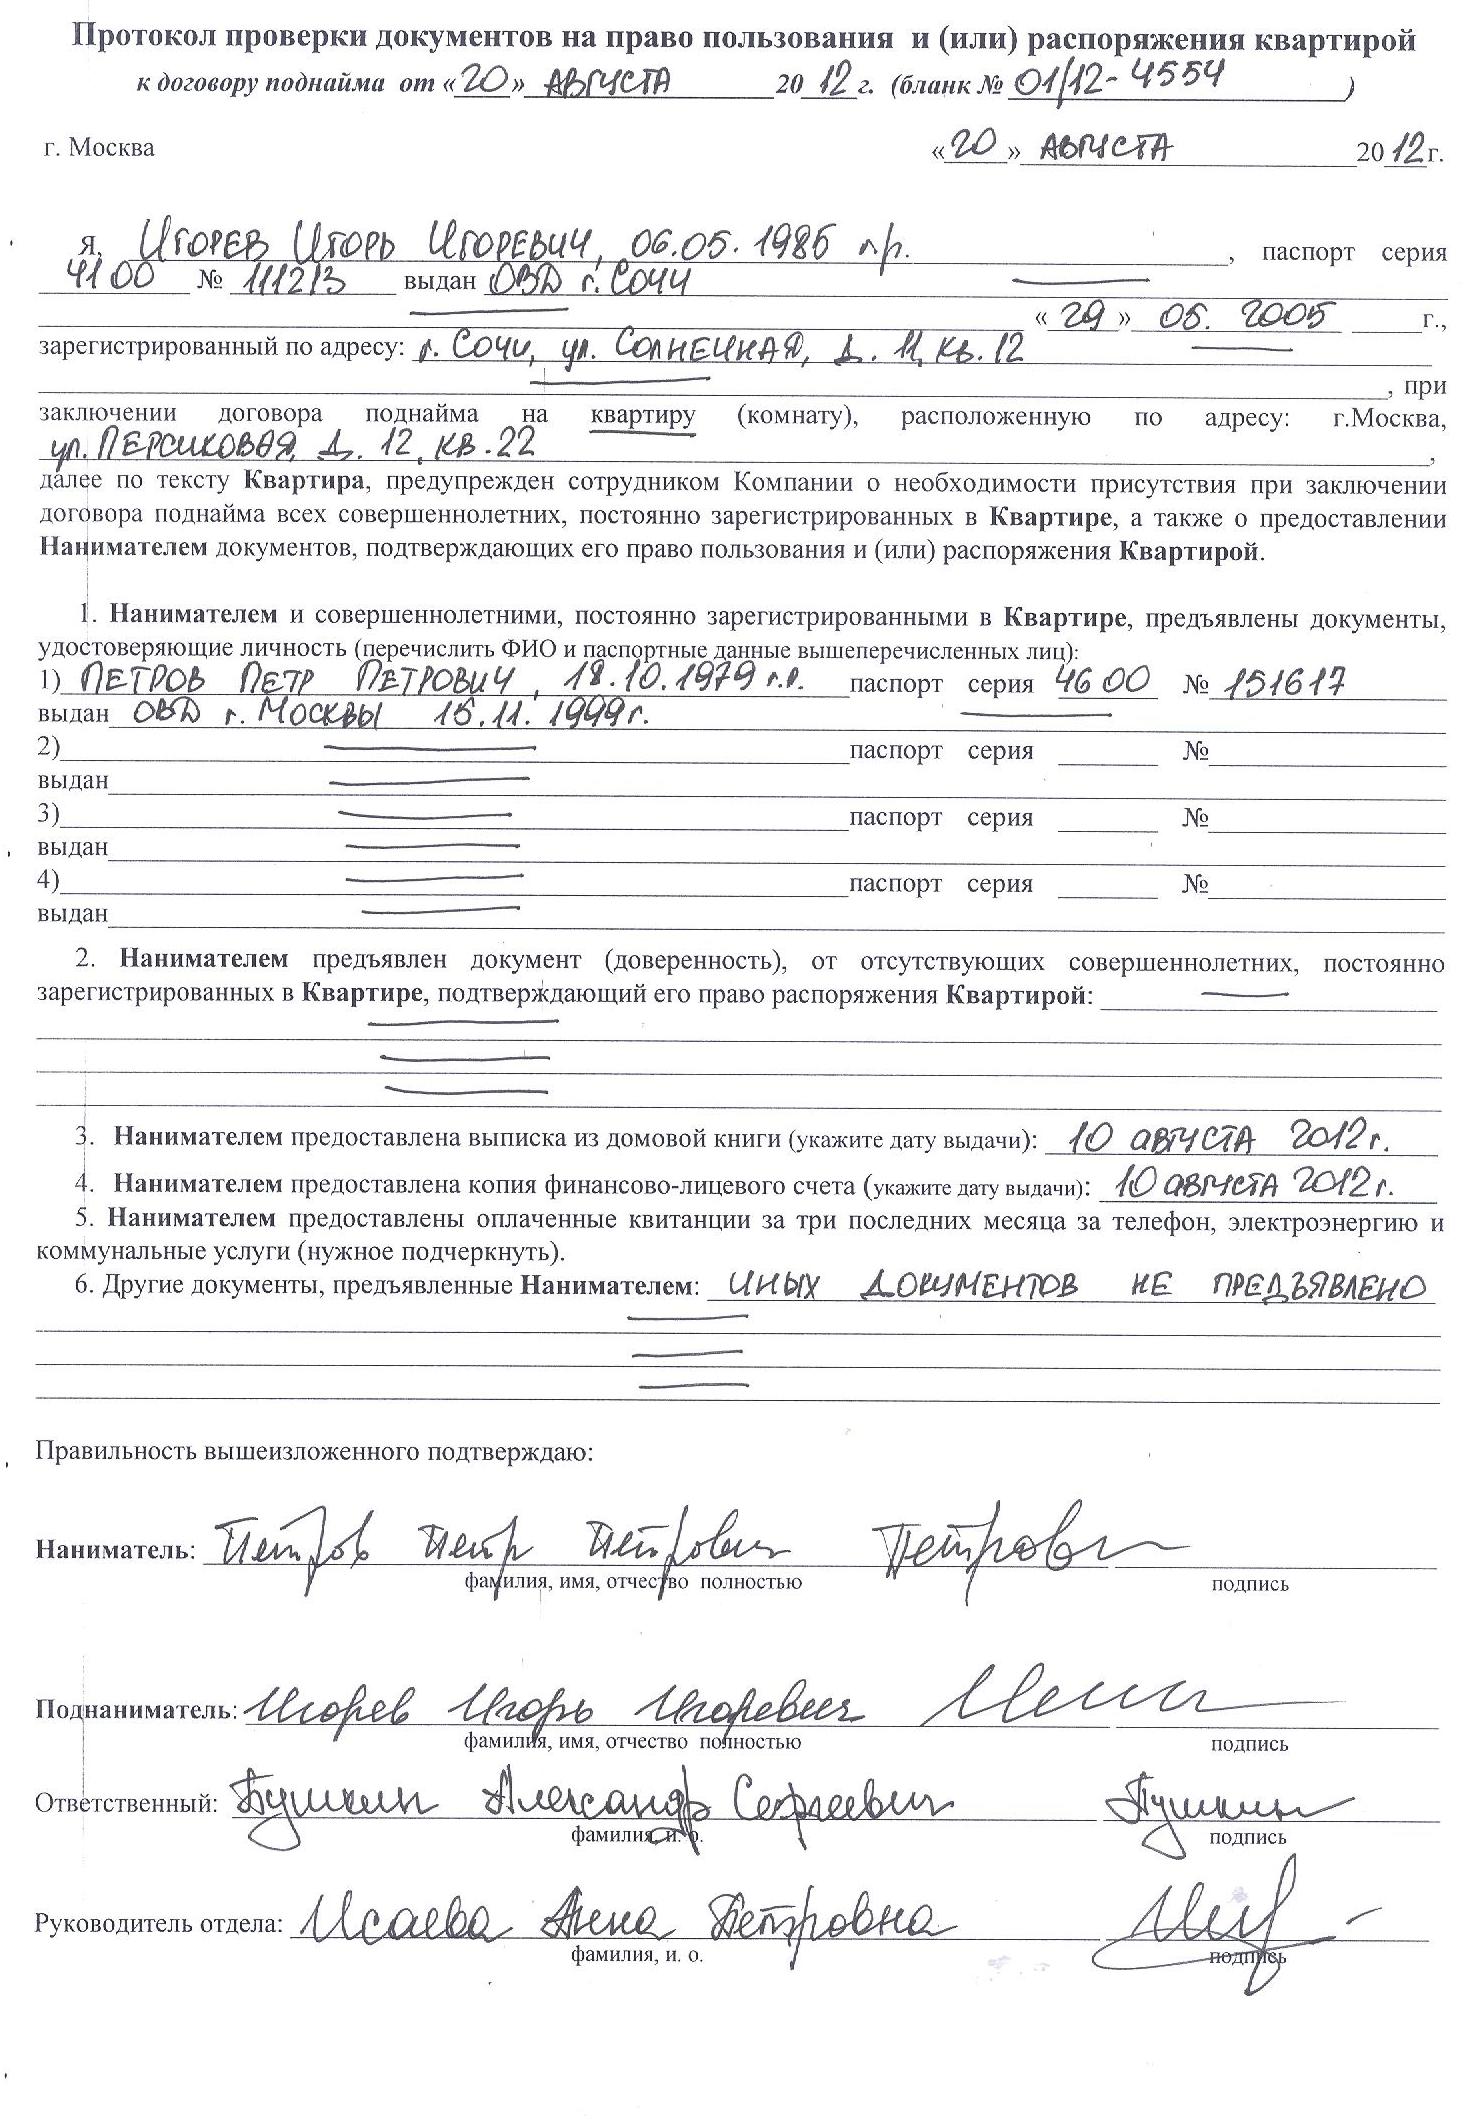 Протокол проверки документов на право пользования и (или) распоряжения квартирой
к договору поднайма от «20» АВГУСТА 2012 г. (бланк № 01/12-4554 )
г. Москва «20» АВГУСТА 2012 г.
Я, ИГОРЕВ ИГОРЬ ИГОРЕВИЧ, 06.05.1985 г.р. , паспорт серия
4100 № 111213 выдан ОВД г. СОЧИ
«29» 05. 2005 г.,
зарегистрированный по адресу: г. СОЧИ, ул. СОЛНЕЧНАЯ, Д. 11, КВ. 12
, при
заключении договора поднайма на квартиру (комнату), расположенную по адресу: г.Москва,
ул. ПЕРСИКОВАЯ, Д. 12, КВ. 22 ,
далее по тексту Квартира, предупрежден сотрудником Компании о необходимости присутствия при заключении
договора поднайма всех совершеннолетних, постоянно зарегистрированных в Квартире, а также о предоставлении
Нанимателем документов, подтверждающих его право пользования и (или) распоряжения Квартирой.
1. Нанимателем и совершеннолетними, постоянно зарегистрированными в Квартире, предъявлены документы,
удостоверяющие личность (перечислить ФИО и паспортные данные вышеперечисленных лиц):
1) ПЕТРОВ ПЕТР ПЕТРОВИЧ, 18.10.1979 г.р. паспорт серия 4600 № 151617
выдан ОВД г. МОСКВЫ 15.11.1999г.
2) паспорт серия №
выдан
3) паспорт серия №
выдан
4) паспорт серия №
выдан
2. Нанимателем предъявлен документ (доверенность), от отсутствующих совершеннолетних, постоянно
зарегистрированных в Квартире, подтверждающий его право распоряжения Квартирой:
3. Нанимателем предоставлена выписка из домовой книги (укажите дату выдачи): 10 АВГУСТА 2012г.
4. Нанимателем предоставлена копия финансово-лицевого счета (укажите дату выдачи): 10 АВГУСТА 2012г.
5. Нанимателем предоставлены оплаченные квитанции за три последних месяца за телефон, электроэнергию и
коммунальные услуги (нужное подчеркнуть).
6. Другие документы, предъявленные Нанимателем: ИНЫХ ДОКУМЕНТОВ НЕ ПРЕДЪЯВЛЕНО
Правильность вышеизложенного подтверждаю:
Наниматель: Петров Петр Петрович Петров
фамилия, имя, отчество полностью подпись
Поднаниматель: Игорев Игорь Игоревич
фамилия, имя, отчество полностью подпись
Ответственный: Пушкин Александр Сергеевич Пушкин
фамилия, и. о. подпись
Руководитель отдела: Исаева Анна Петровна
фамилия, и. о. подпись